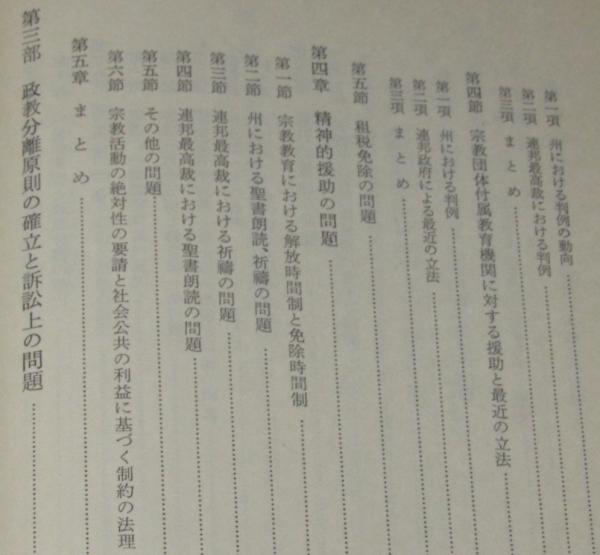 第一項 州における判例の動向
第二項 連邦最高裁における判例
第三項 まとめ
第四節 宗教団体付属教育機関に対する援助と最近の立法
第一項 州における判例
第二項 連邦政府による最近の立法
第三項 まとめ
第五節 租税免除の問題
第四章 精神的援助の問題
第一節 宗教教育における解放時間制と免除時間制
第二節 州における聖書朗読、祈禱の問題
第三節 連邦最高裁における祈禱の問題
第四節 連邦最高裁における聖書朗読の問題
第五節 その他の問題
第六節 宗教活動の絶対性の要請と社会公共の利益に基づく制約の法理
第五章 まとめ
第三部 政教分離原則の確立と訴訟上の問題